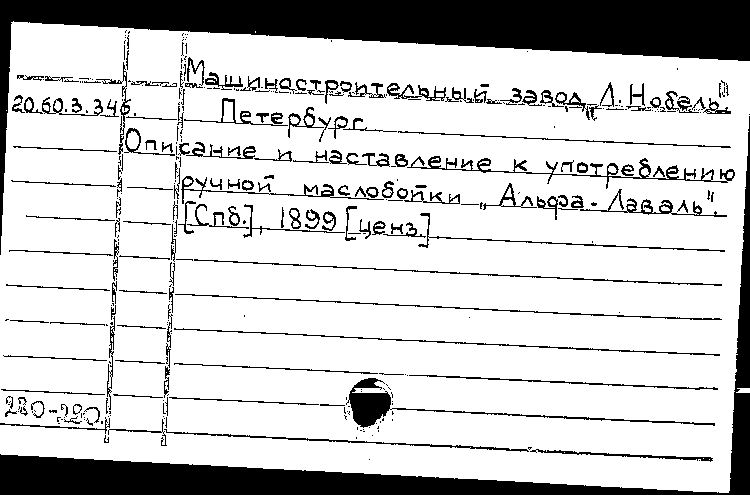 Машиностроительный завод „Л. Нобель".
20.60.3.346.
Петербург.
Описание и наставление к употреблению
ручной маслобойки „Альфа-Лаваль".
[Спб.], 1899 [ценз.].
280-290.